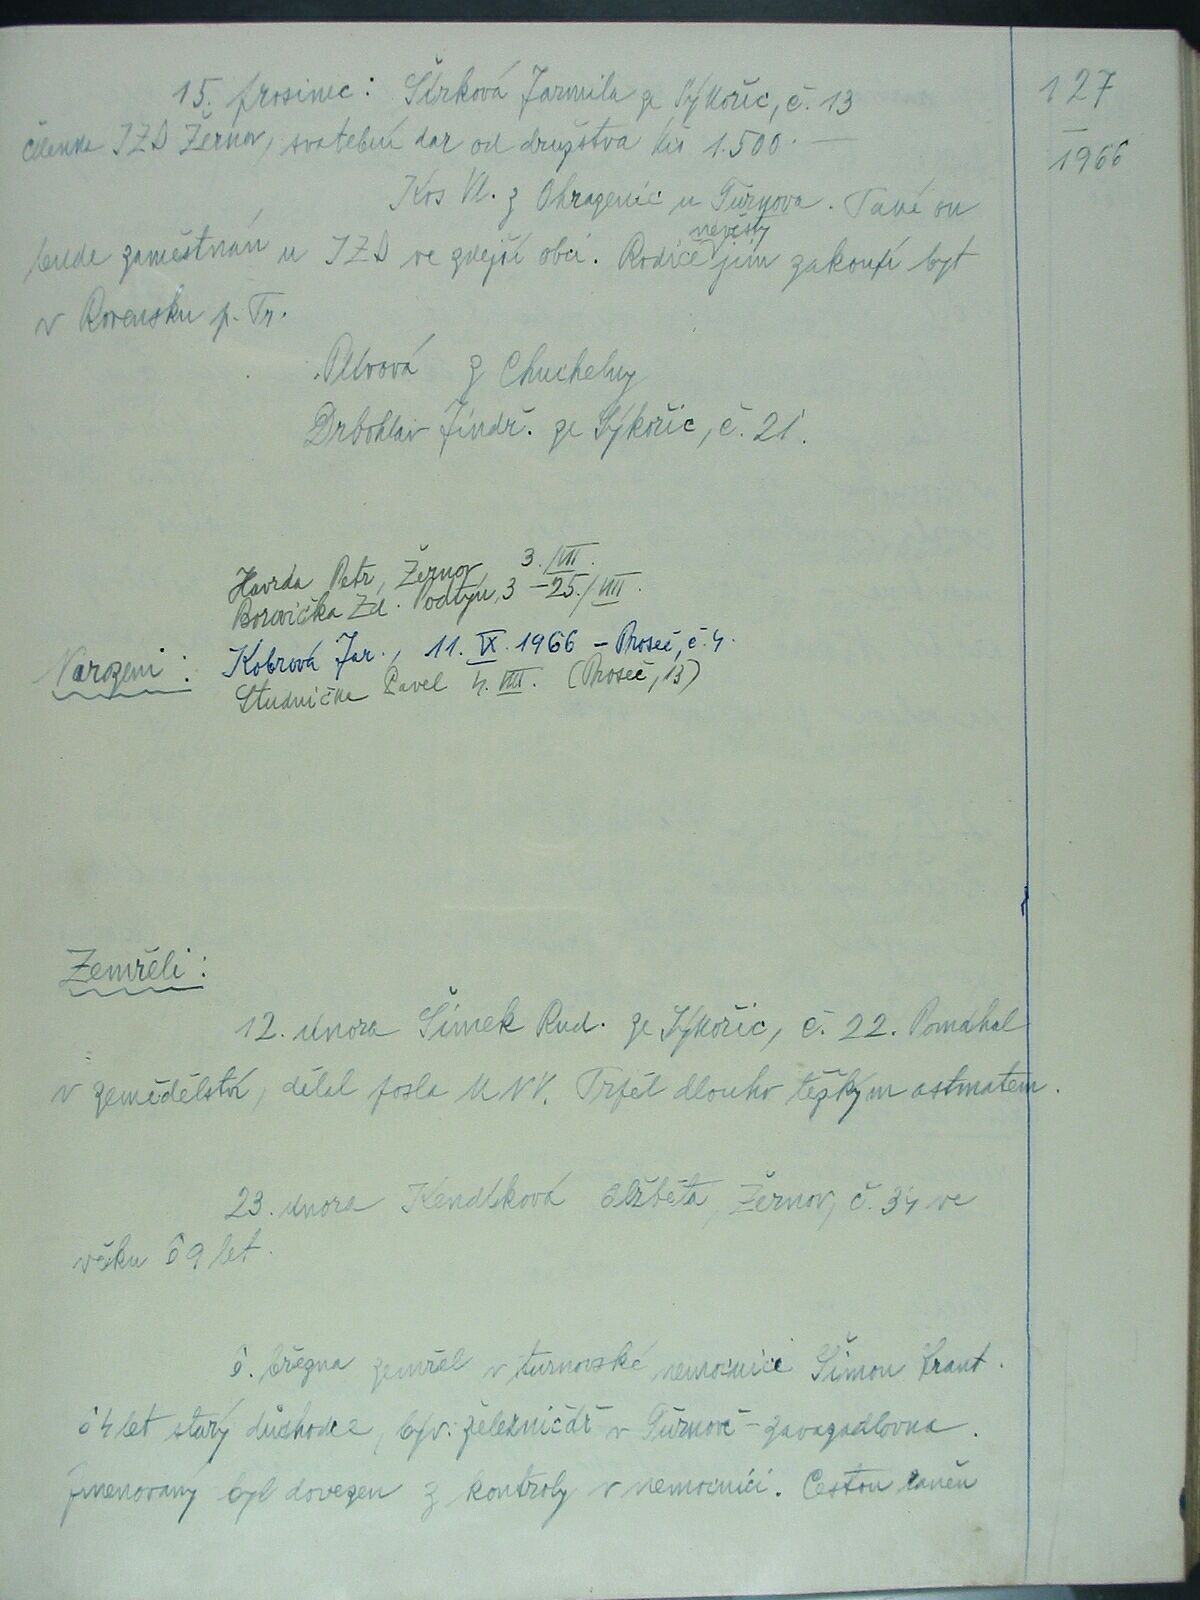 127
1966
15. prosinec: Šírková Jarmila ze Sýkořic, č. 13
členka JZD Žernov, svatební dar od družstva Kčs 1.500.—
Kos Vl. z Ohrazenic u Turnova. Také on
bude zaměstnán u JZD ve zdejší obci. Rodiče nevěsty jim zakoupí byt
v Rovensku p. Tr.
z Chuchelny
Drbohlav Jindř. ze Sýkořic, č. 21.
Havrda Petr, Žernov 3./VII.
Borovička Zd. Podtýn, 3 – 25./VII.
Narozeni: Kobrová Jar., 11. IX. 1966 – Proseč, č. 4.
Studnička Pavel 4. VIII. (Proseč, 13)
Zemřeli:
12. února Šimek Rud. ze Sýkořic, č. 22. Pomáhal
v zemědělství, dělal posla MNV. Trpěl dlouho těžkým astmatem.
23. února Kendíková Alžběta, Žernov, č. 34 ve
věku 69 let.
6. března zemřel v turnovské nemocnici Šimon Frant.
64 let starý důchodce, býv. železničář v Turnově - zavazadlovna.
Jmenovaný byl dovezen z kontroly v nemocnici. Cestou raněn